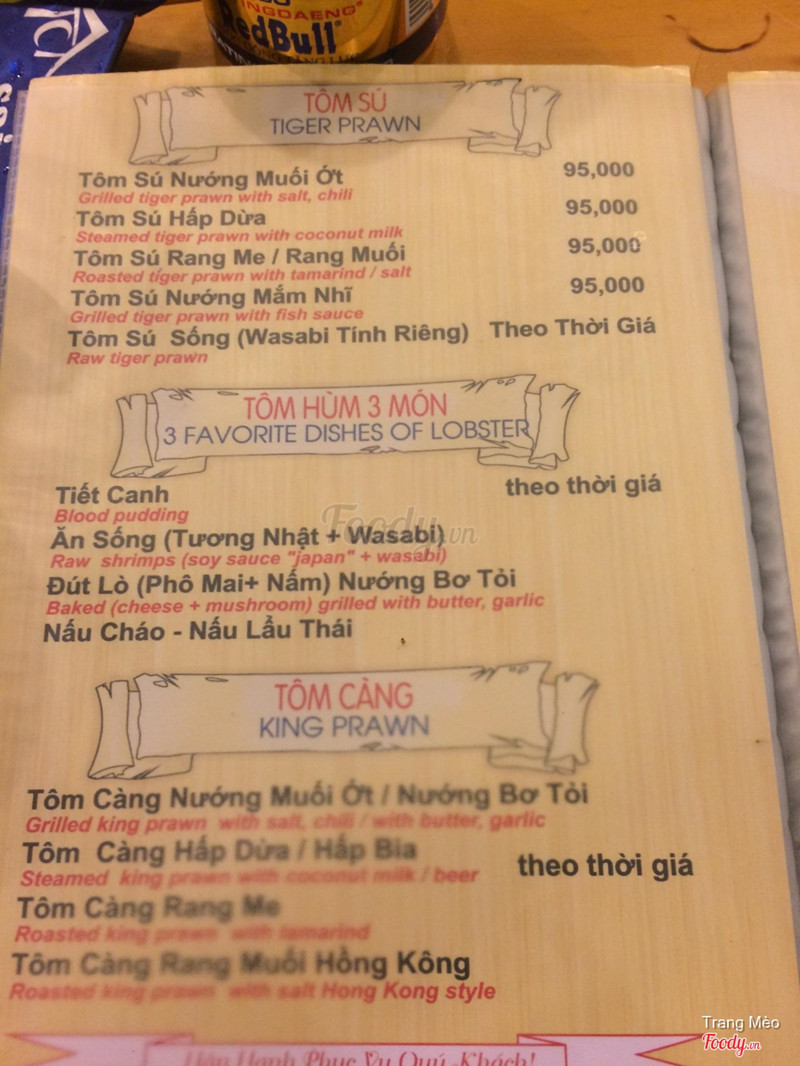 RedBull
TÔM SÚ
TIGER PRAWN
Tôm Sú Nướng Muối Ớt 95,000
Grilled tiger prawn with salt, chili
Tôm Sú Hấp Dừa 95,000
Steamed tiger prawn with coconut milk
Tôm Sú Rang Me / Rang Muối 95,000
Roasted tiger prawn with tamarind / salt
Tôm Sú Nướng Mắm Nhĩ 95,000
Grilled tiger prawn with fish sauce
Tôm Sú Sống (Wasabi Tính Riêng) Theo Thời Giá
Raw tiger prawn
TÔM HÙM 3 MÓN
3 FAVORITE DISHES OF LOBSTER
Tiết Canh theo thời giá
Blood pudding
Foody.vn
Ăn Sống (Tương Nhật + Wasabi)
Raw shrimps (soy sauce "japan" + wasabi)
Đút Lò (Phô Mai+ Nấm) Nướng Bơ Tỏi
Baked (cheese + mushroom) grilled with butter, garlic
Nấu Cháo - Nấu Lẩu Thái
TÔM CÀNG
KING PRAWN
Tôm Càng Nướng Muối Ớt / Nướng Bơ Tỏi
Grilled king prawn with salt, chili / with butter, garlic
Tôm Càng Hấp Dừa / Hấp Bia
Steamed king prawn with coconut milk / beer theo thời giá
Tôm Càng Rang Me
Roasted king prawn with tamarind
Tôm Càng Rang Muối Hồng Kông
Roasted king prawn with salt Hong Kong style
Trang Mèo
Foody.vn
Hân Hạnh Phục Vụ Quý Khách!